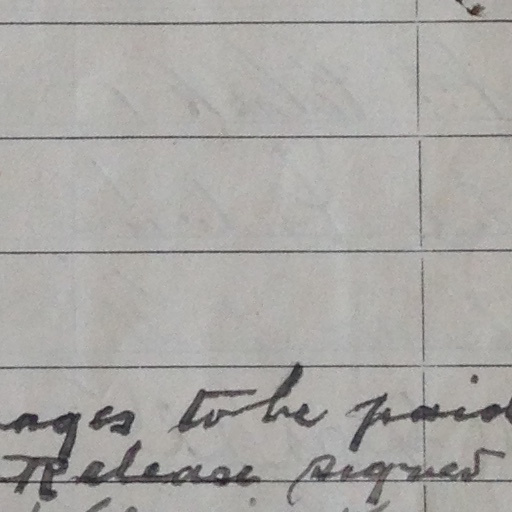 ages to be paid
Release signed